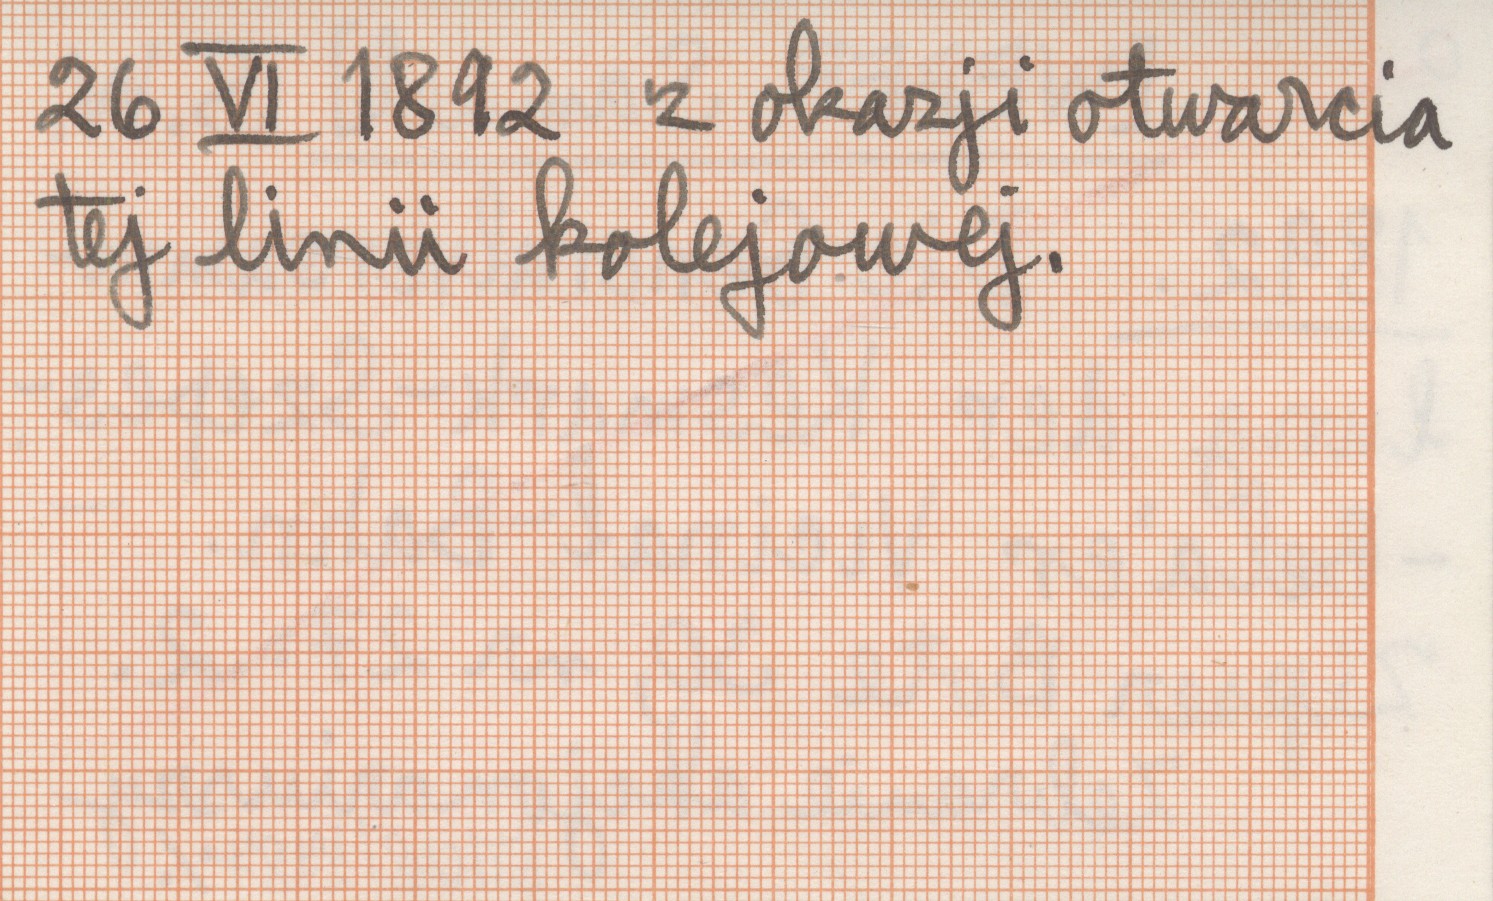 26 VI 1892 z okazji otwarcia
tej linii kolejowej.